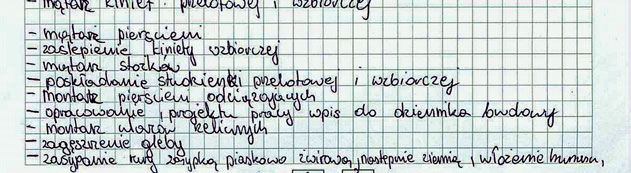 - mątarz kinet przelotowej i wzbiorczej
- mątarz pierścieni
- zaslepienie kiniety wzbiorczej
- mątarz stożków
- poskładanie studzienki przelotowej i wzbiorczej
- montarz pierścieni odciążających
- opracowanie projektu pracy wpis do dziennika budowy
- montarz włazów żeliwnych
- zagęszczenie gleby
- zasypanie rury zasypką piaskowo żwirową, następnie ziemią, włożenie humusu,